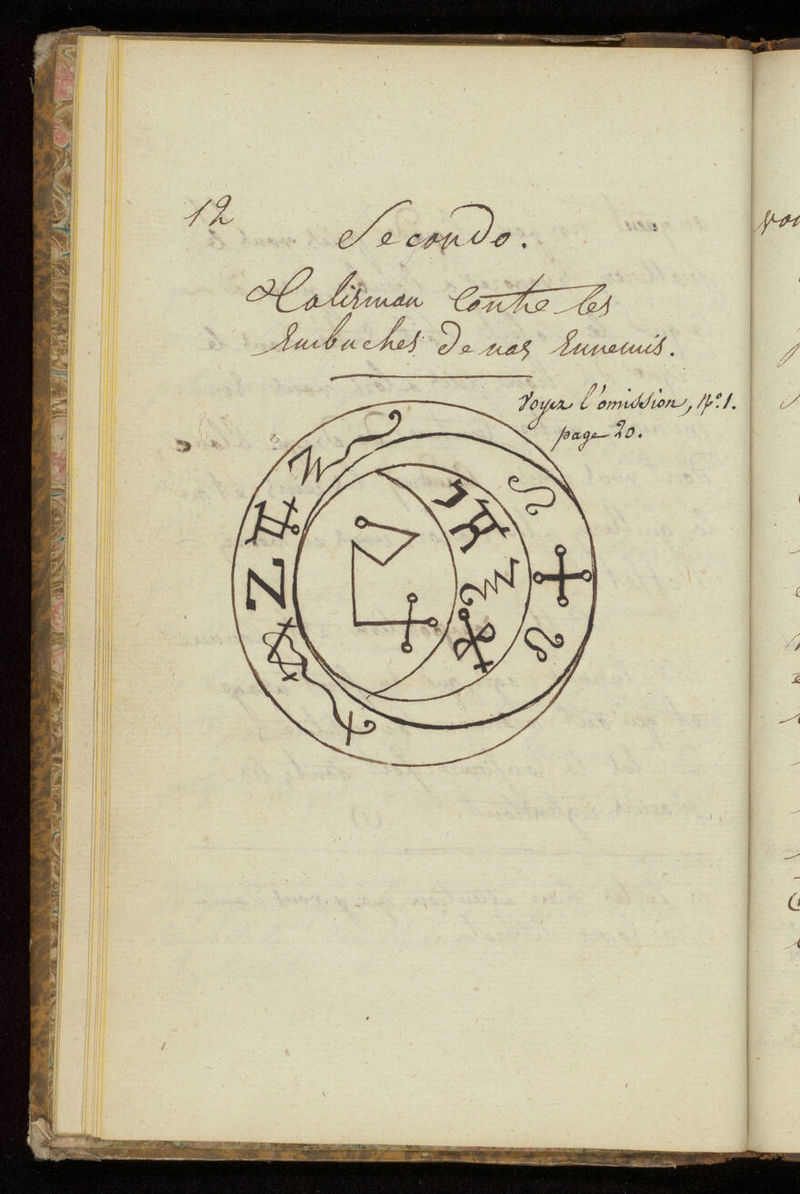 12
Secondo.
Talisman Contre les
Embuches De nos Ennemis.
Voyez l'omission, N.º 1.
page 20.